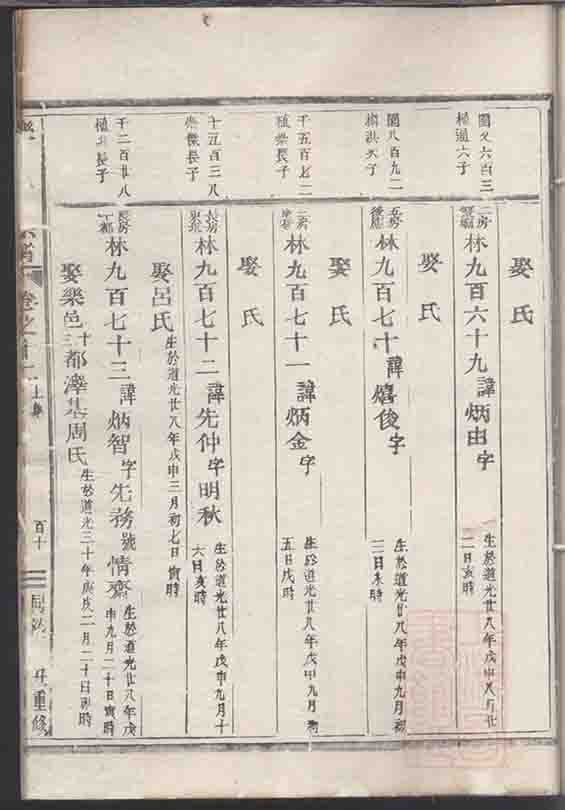 娶氏
閏又六百三
植通六子
二房
林九百六十九諱炳由字
生於道光廿八年戊申八月廿
二日亥時
娶氏
閏八百九二
林九百七十諱熺俊字
生於道光廿八年戊申九月初
二日未時
娶氏
千五百七二
植榮長子
林九百七十一諱炳金字
生於道光廿八年戊申九月初
五日戌時
娶氏
十五百三八
長房
林九百七十二諱先仲字明秋
生於道光廿八年戊申九月十
六日亥時
娶呂氏
生於道光廿八年戊申三月初七日寅時
千二百廿八
植北長子
長房
林九百七十三諱炳智字先務號情齋
生於道光廿八年戊
申九月二十日寅時
娶樂邑十三都澤基周氏
生於道光三十年庚戌二月二十日卯時
卷之首
上集
百十
重修